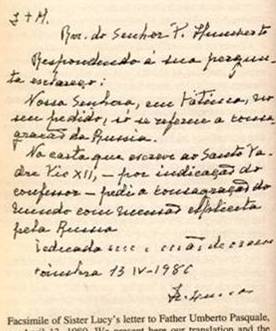 J + M.
Rev. do Senhor P. Humberto
Respondendo à sua pergun-
ta esclareço:
Nossa Senhora, em Fátima, no
seu pedido, só se referiu à consa-
gração da Russia.
Na carta que escrevi ao Santo Pa-
dre Pio XII, – por indicação do
confessor – pedi a consagração do
mundo com menção explicita
pela Russia
Coimbra 13 IV-1980
Facsimile of Sister Lucy's letter to Father Umberto Pasquale,
April 13, 1980. We present here our translation and the